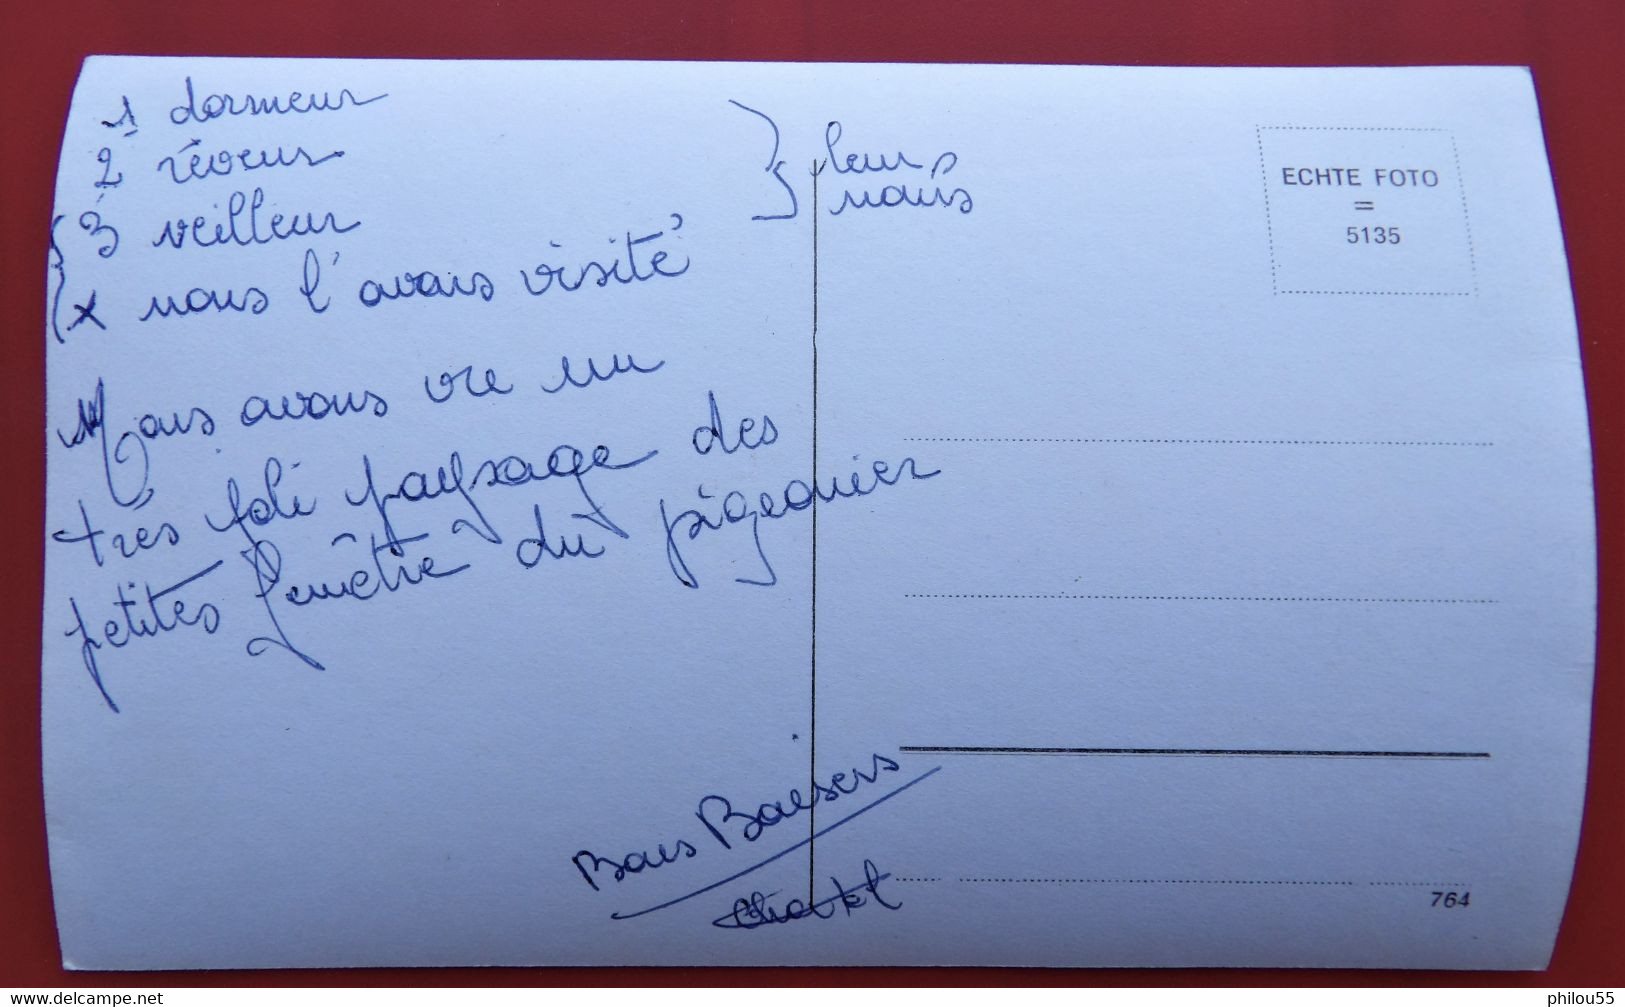 1 dormeur
2 rêveur
3 veilleur
leurs
noms
x nous l'avons visité
Nous avons vue un
très joli paysage des
petites fenêtre du pigeonier
Bons Baisers
ECHTE FOTO
=
5135
764
delcampe.net
philou55